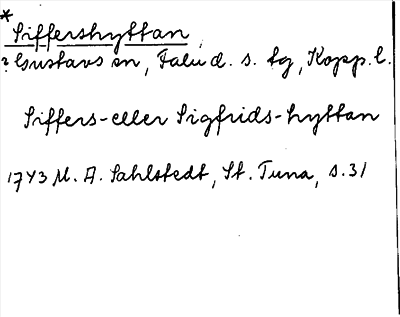 *
Siffershyttan,
? Gustavs sn, Falu d. s. tg, Kopp. l.
Siffers- eller Sigfrids-hyttan
1743 M. A. Sahlstedt, St. Tuna, s. 31